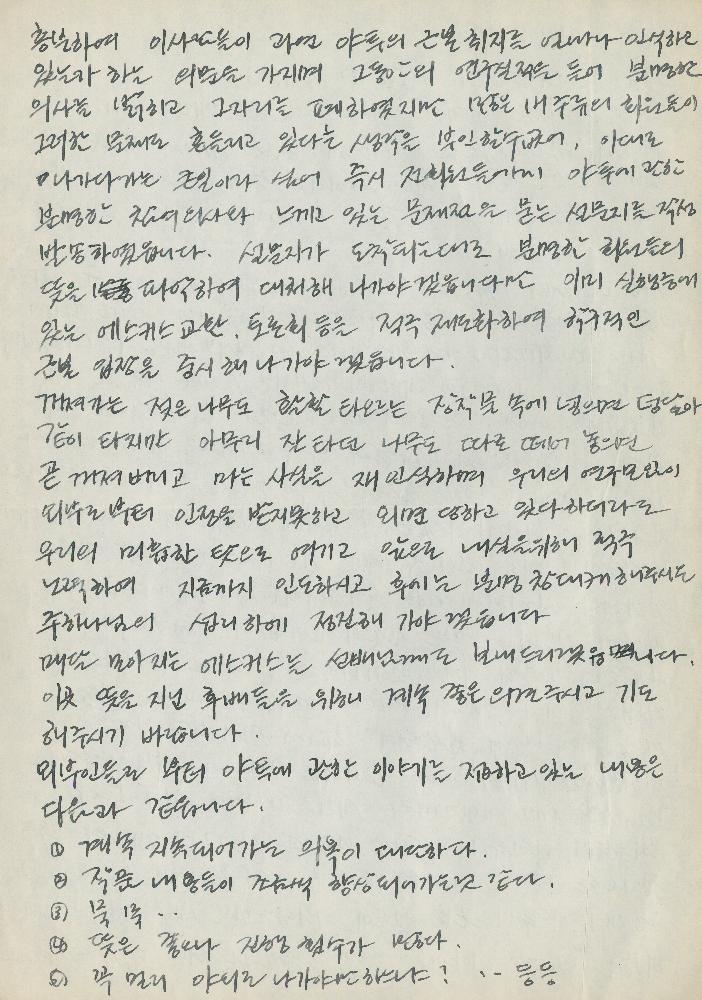 흥분하여 이사쬬들이 과연 야투의 근본 취지를 얼마나 인식하고
있는가 하는 의문을 가지며 그동안의 연구실적을 들어 분명한
의사를 밝히고 그자리를 폐하였지만 많은 내주류의 회원들이
그러한 문제로 흔들리고 있다는 생각을 부인할수없어, 이대로
나가다가는 큰일이라 싶어 즉시 전회원들에게 야투에 관한
분명한 참여의사와 느끼고 있는 문제점을 묻는 설문지를 작성
발송하였읍니다. 설문지가 도착되는대로 분명한 회원들의
뜻을 파악하여 대처해 나가야 겠읍니다만 이미 실행중에
있는 에스키스 교환, 토론회 등을 적극 제도화하여 학구적인
근본 입장을 중시해 나가야 겠읍니다.
꺼져가는 젖은나무도 활활 타오르는 장작불 속에 넣으면 덩달아
같이 타지만 아무리 잘타던 나무도 따로 떼어 놓으면
곧 꺼져 버리고 마는 사실을 재인식하며 우리의 연구모임이
외부로부터 인정을 받지못하고 외면 당하고 있다하더라도
우리의 미흡한 탓으로 여기고 앞으로 내실을위해 적극
노력하여 지금까지 인도하시고 후에는 분명 창대케 해주시는
주하나님의 섭리하에 정진해 가야 겠읍니다
매달 모아지는 에스키스는 선배님께도 보내드리겠읍니다.
이곳 뜻을 지닌 후배들을 위해 계속 좋은 의견주시고 기도
해주시기 바랍니다.
외부인들로 부터 야투에 관한 이야기를 접하고 있는 내용은
다음과 같읍니다.
① 계속 지속되어가는 의욕이 대단하다.
② 작품 내용들이 조금씩 향상되어가는것 같다.
③ 묵묵..
④ 뜻은 좋으나 진행 횟수가 많다.
⑤ 꼭 멀리 야외로 나가야만 하느냐? ‥ 등등